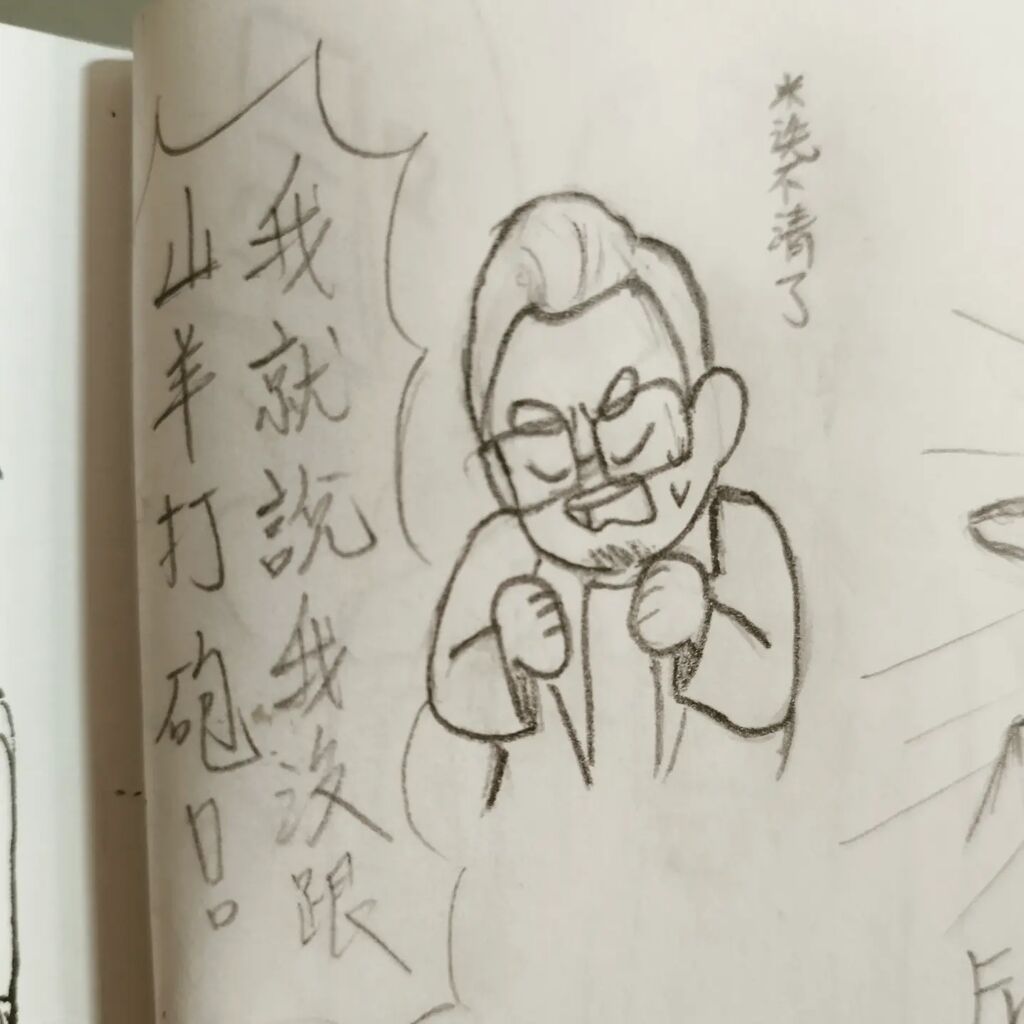 我就說我沒跟
山羊打砲!!
*洗不清了